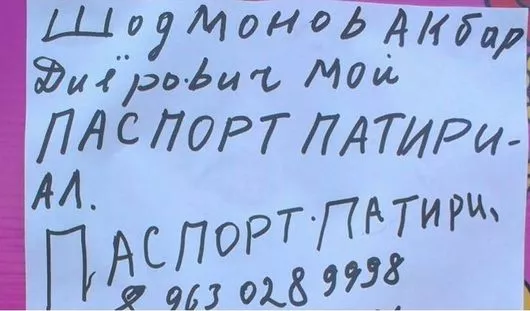 Шодмонов Акбар
Диёрович мой
ПАСПОРТ ПАТИРИ-
АЛ.
ПАСПОРТ.ПАТИРИ
8 963 028 9998